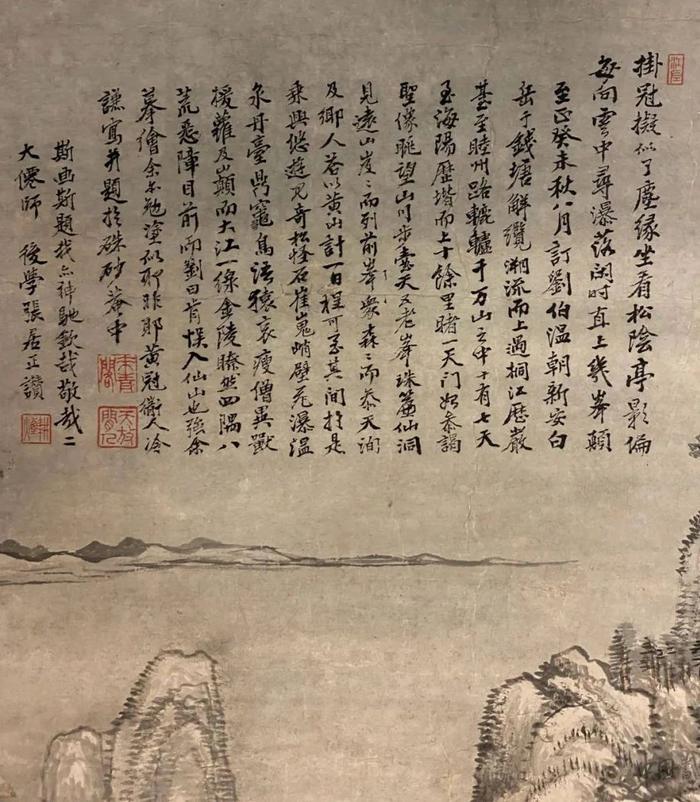 掛冠擬似了塵緣坐看松陰亭影偏
每向雲中尋瀑落閒時直上幾峯顛
至正癸未秋八月訂劉伯溫朝新安白
岳于錢塘解纜溯流而上過桐江歷嚴
甚至睦州路轆轤千万山之中十有七天
至海陽歷堦而上十餘里睹一天門始忝謁
聖像眺望山川步臺天又老峯珠簾仙洞
見遠山崀崀而列前峯衆森森而忝天詢
及鄉人答以黃山計一日程可至其間於是
乘興悠遊見奇松怪石崔嵬峭壁飛瀑溫
泉丹臺鼎竈鳥语猿哀瘦僧異獸
援蘿及山巔而大江一綫金陵瞭然四隅八
荒悉障目前而劉曰肯悞入仙山也強余
摹繪余尓勉塗似耶非耶黃冠衡人冷
謙寫并題於硃砂菴中
斯画斯題我亦神馳歎哉敬哉二
大僊師 後學張居正讚